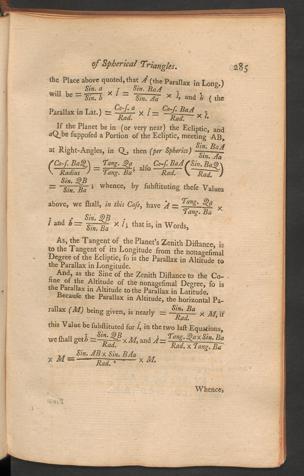 of Spherical Triangles. 285
the Place above quoted, that A (the Parallax in Long.)
will be = Sin. a / Sin. b × l = Sin. BaA / Sin. Aa × l, and b (the
Parallax in Lat.) = Co-s. a / Rad. × l = Co-s. BaA / Rad. × l.
If the Planet be in (or very near) the Ecliptic, and
aQ be supposed a Portion of the Ecliptic, meeting AB,
at Right-Angles, in Q; then (per Spherics) Sin. BaA / Sin. Aa
(Co-s. BaQ / Radius) = Tang. Qa / Tang. Ba; also Co-s. BaA / Rad. (Sin. BaQ / Rad.)
= Sin. QB / Sin. Ba; whence, by substituting these Values
above, we shall, in this Case, have A = Tang. Qa / Tang. Ba ×
l and b = Sin. QB / Sin. Ba × l; that is, in Words,
As, the Tangent of the Planet's Zenith Distance, is
to the Tangent of its Longitude from the nonagesimal
Degree of the Ecliptic, so is the Parallax in Altitude to
the Parallax in Longitude.
And, as the Sine of the Zenith Distance to the Co-
sine of the Altitude of the nonagesimal Degree, so is
the Parallax in Altitude to the Parallax in Latitude.
Because the Parallax in Altitude, the horizontal Pa-
rallax (M) being given, is nearly = Sin. Ba / Rad. × M, if
this Value be substituted for l, in the two last Equations,
we shall get b = Sin. QB / Rad. × M, and A = Tang. Qa × Sin. Ba / Rad. × Tang. Ba
× M = Sin. AB × Sin. BAa / Rad. × M.
Whence,